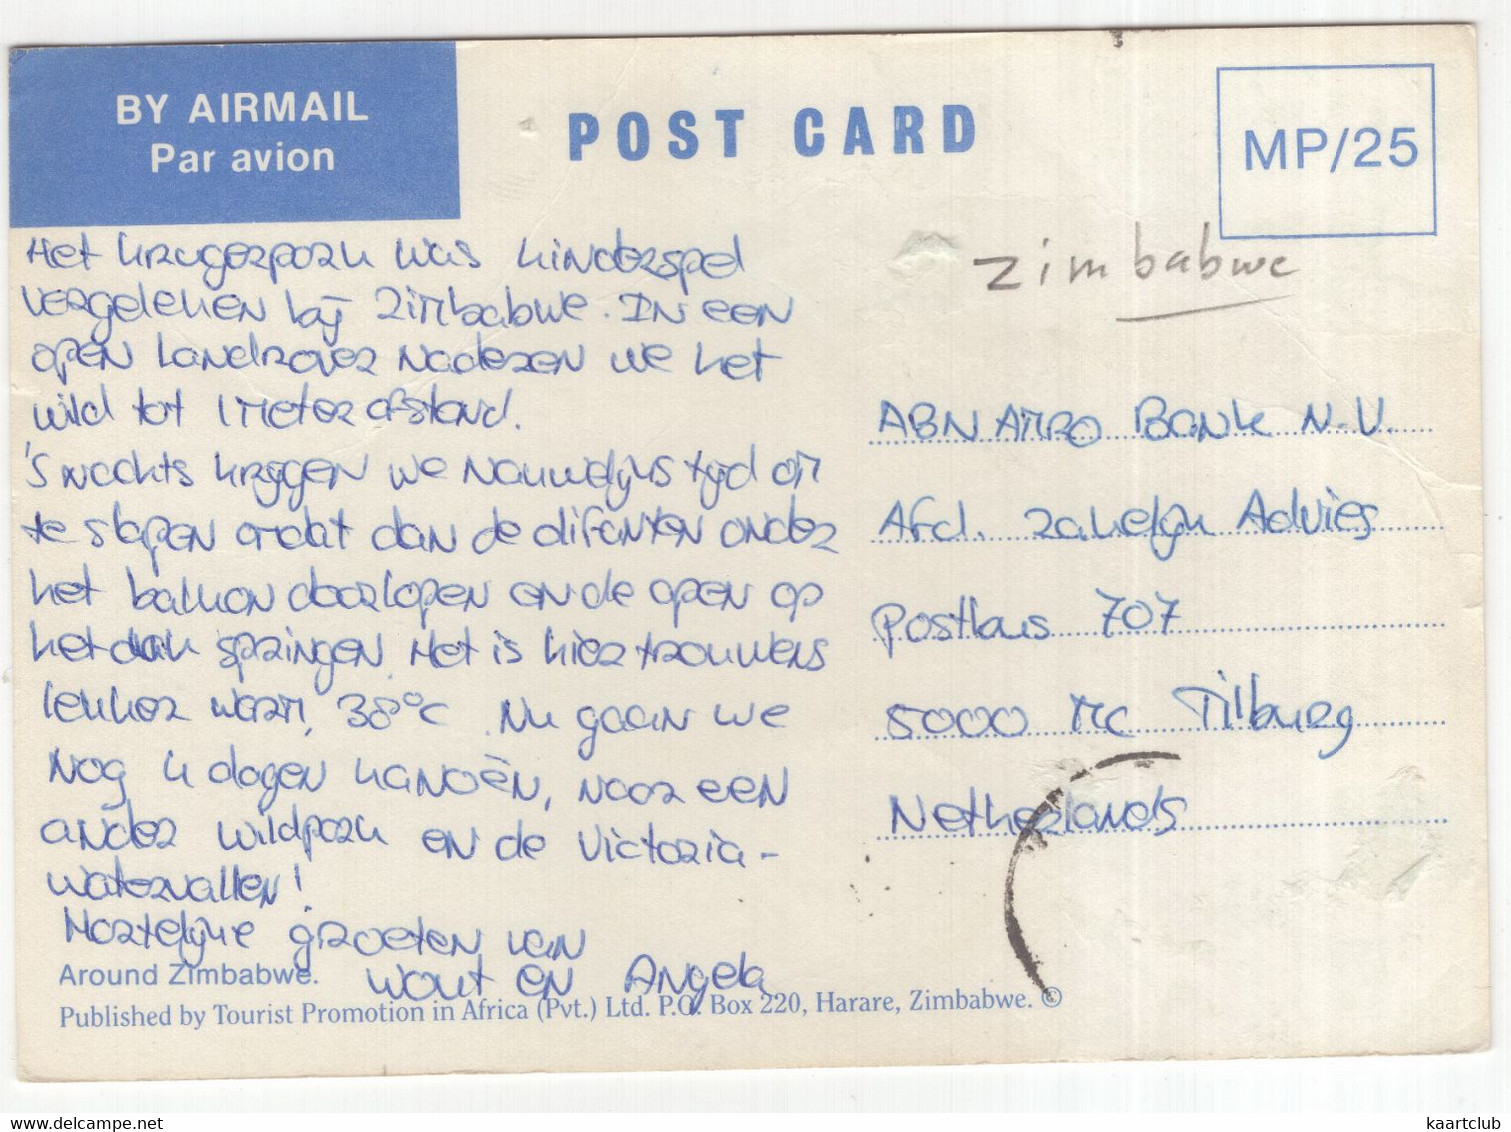 BY AIRMAIL
Par avion
POST CARD
MP/25
Zimbabwe
Het Krugerpark was kinderspel
vergeleken bij Zimbabwe. In een
open landrover naderen we het
wild tot 1 meter afstand.
'S nachts krijgen we nauwelijks tijd om
te slapen omdat dan de olifanten onder
het balkon doorlopen en de apen op
het dak springen. Het is hier trouwens
lekker warm, 38°C. Nu gaan we
nog 4 dagen kanoën, naar een
ander wildpark en de Victoria-
watervallen!
Hartelijke groeten van
Wout en Angela
ABN AMRO Bank N.V.
Afd. Zakelijk Advies
Postbus 707
5000 MC Tilburg
Netherlands
Around Zimbabwe.
Published by Tourist Promotion in Africa (Pvt.) Ltd. P.O. Box 220, Harare, Zimbabwe. ©
kaartclub